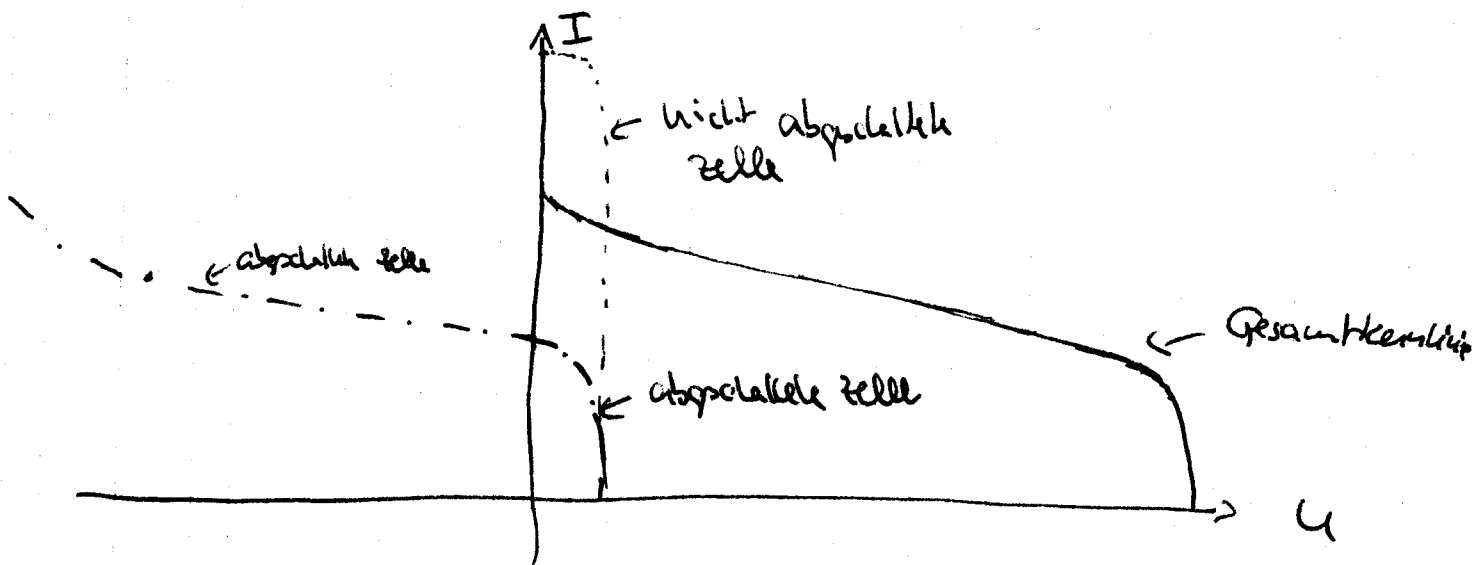 I
← nicht abgeschattete
Zelle
← abgeschattete Zelle
← Gesamtkennlinie
← abgeschattete Zelle
U